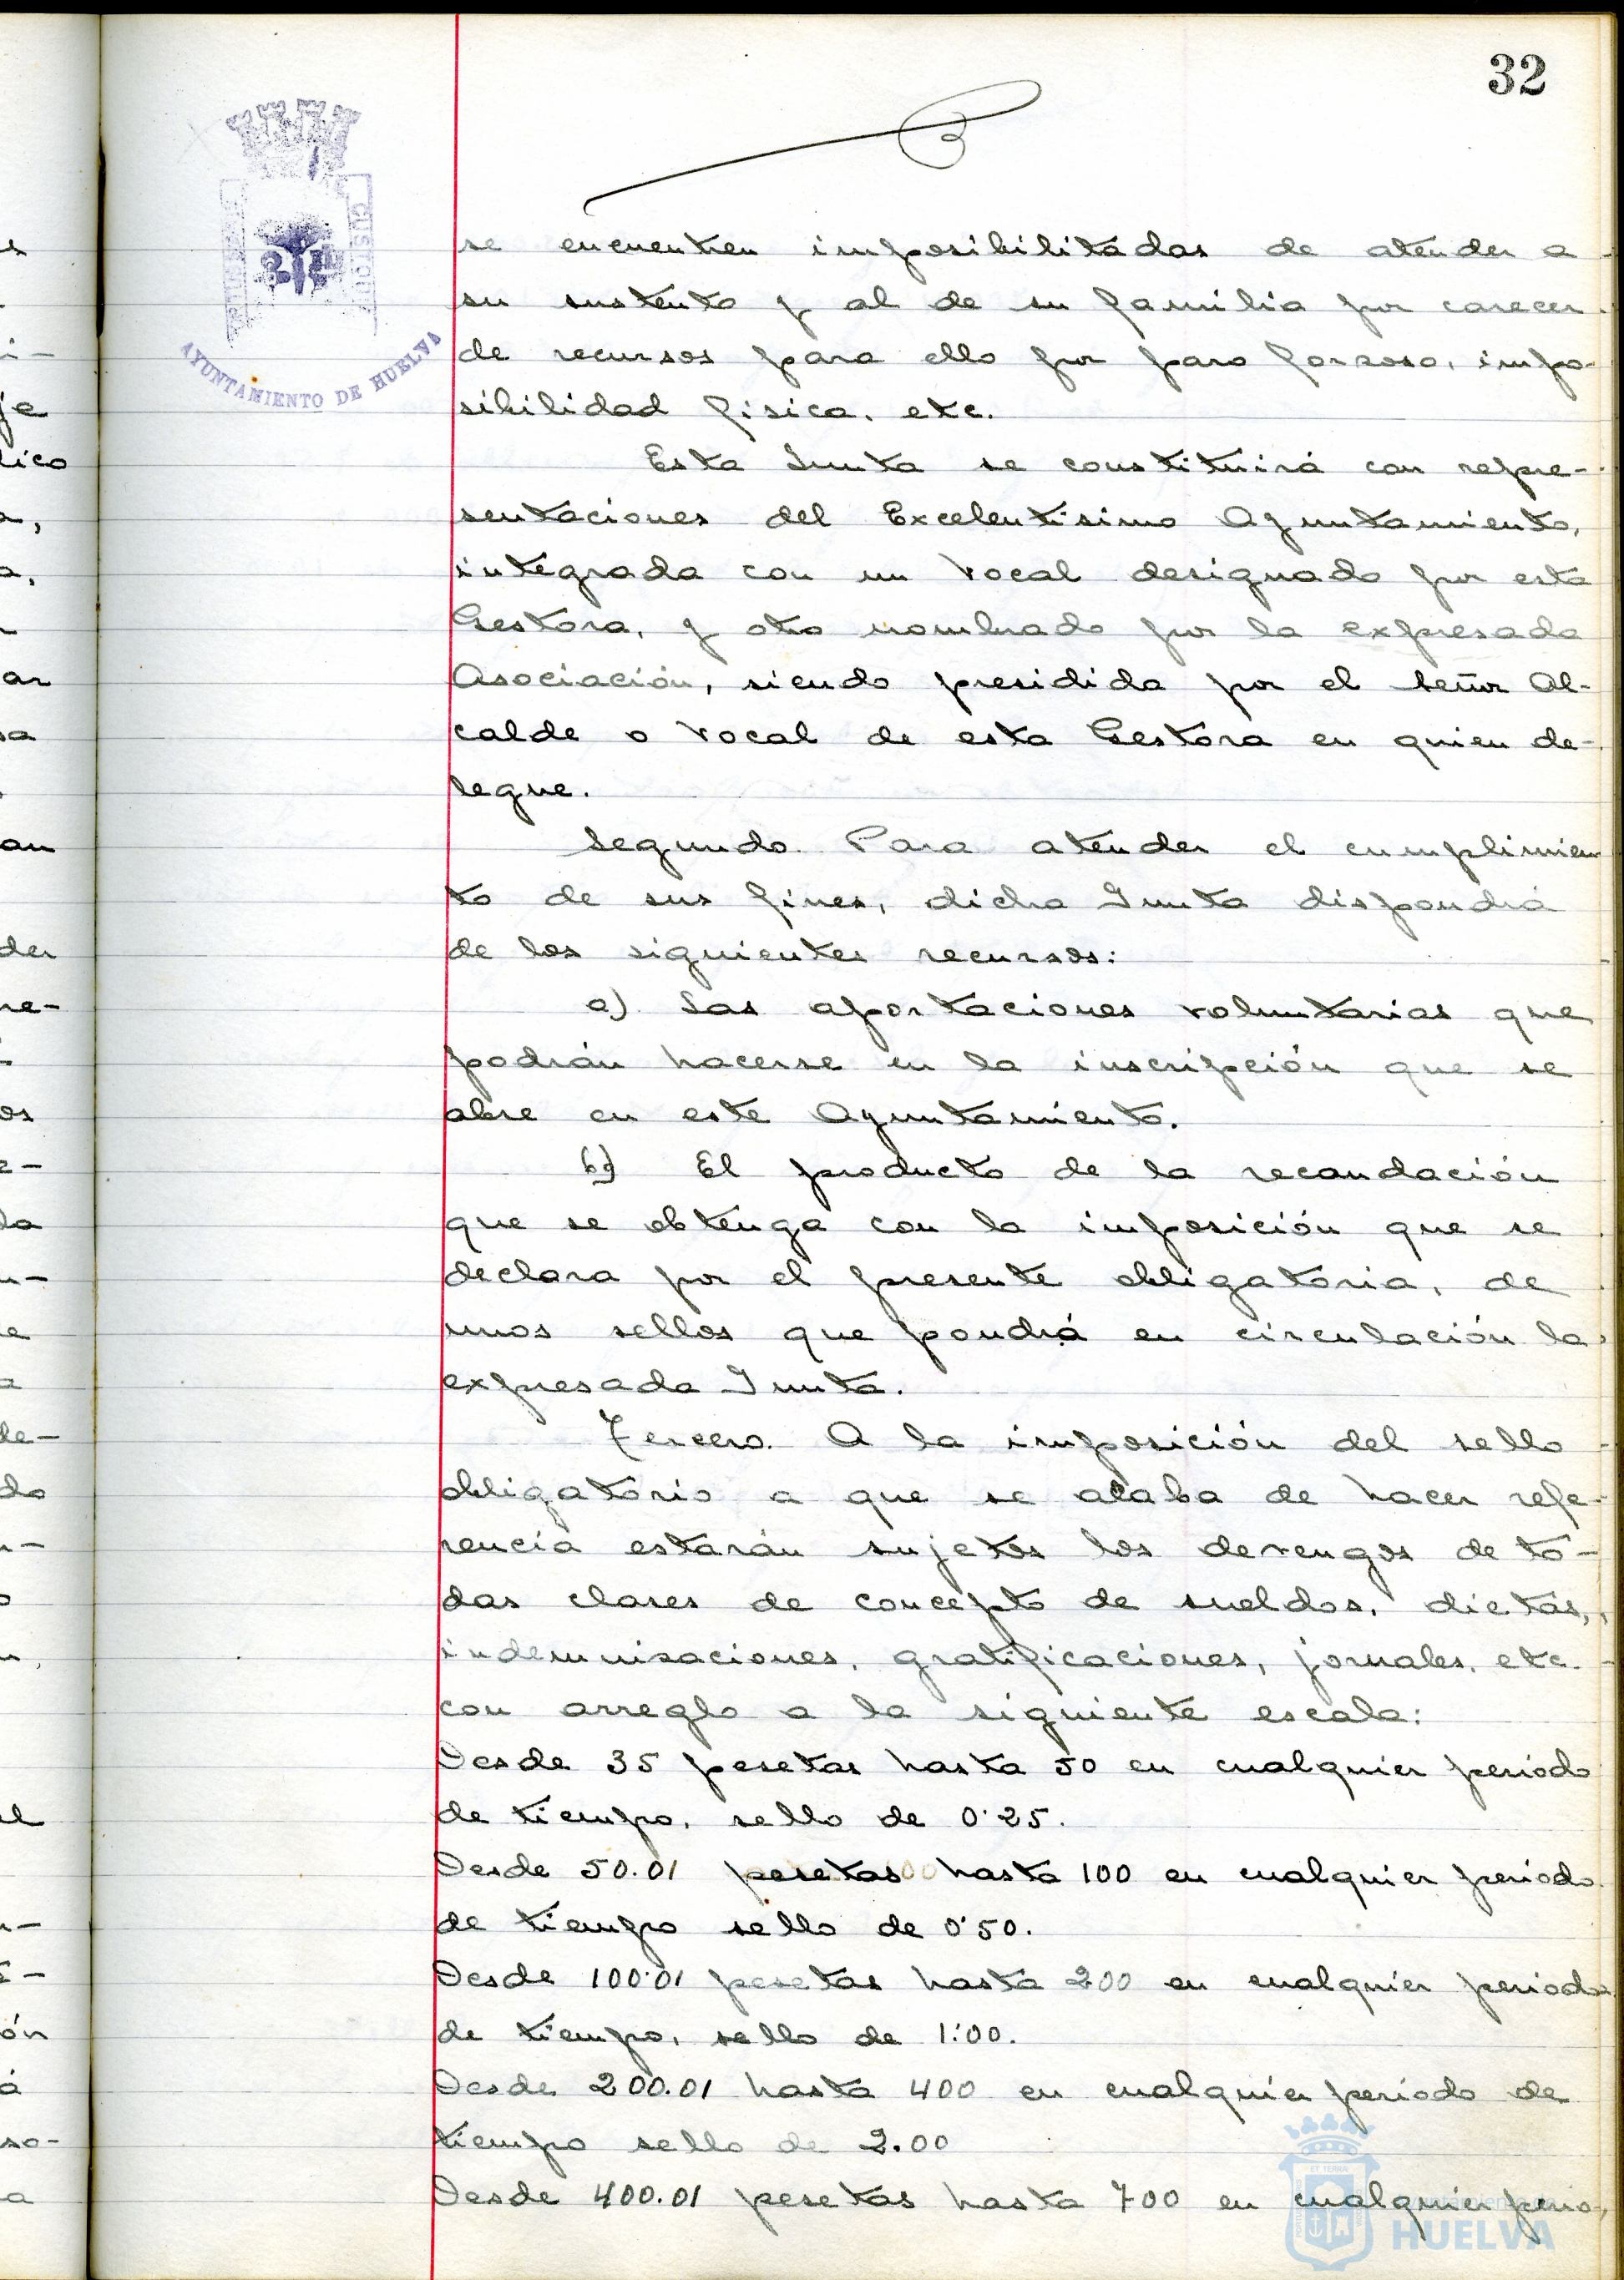 32
AYUNTAMIENTO DE HUELVA
se encuentren imposibilitadas de atender a
su sustento y al de su familia por carecer
de recursos para ello por paro forzoso, impo-
sibilidad fisica, etc.
Esta Junta se constituirá con repre-
sentaciones del Excelentisimo Ayuntamiento,
integrada con un Vocal designado por esta
Gestora, y otro nombrado por la expresada
Asociación, siendo presidida por el Señor Al-
calde o Vocal de esta Gestora en quien de-
legue.
Segundo. Para atender el cumplimien
to de sus fines, dicha Junta dispondrá
de los siguientes recursos:
a) Las aportaciones voluntarias que
podrán hacerse en la inscripción que se
abre en este Ayuntamiento.
b) El producto de la recaudación
que se obtenga con la imposición que se
declara por el presente obligatoria, de
unos sellos que pondrá en circulación la
expresada Junta.
Tercero. A la imposición del sello
obligatorio a que se acaba de hacer refe-
rencia estarán sujetos los devengos de to-
das clases de concepto de sueldos, dietas,
indemnisaciones, gratificaciones, jornales, etc.
con arreglo a la siguiente escala:
Desde 35 pesetas hasta 50 en cualquier periodo
de tiempo, sello de 0'25.
Desde 50.01 pesetas hasta 100 en cualquier periodo
de tiempo sello de 0'50.
Desde 100'01 pesetas hasta 200 en cualquier periodo
de tiempo, sello de 1'00.
Desde 200.01 hasta 400 en cualquier periodo de
tiempo sello de 2.00
Desde 400.01 pesetas hasta 700 en cualquier perio-
HUELVA